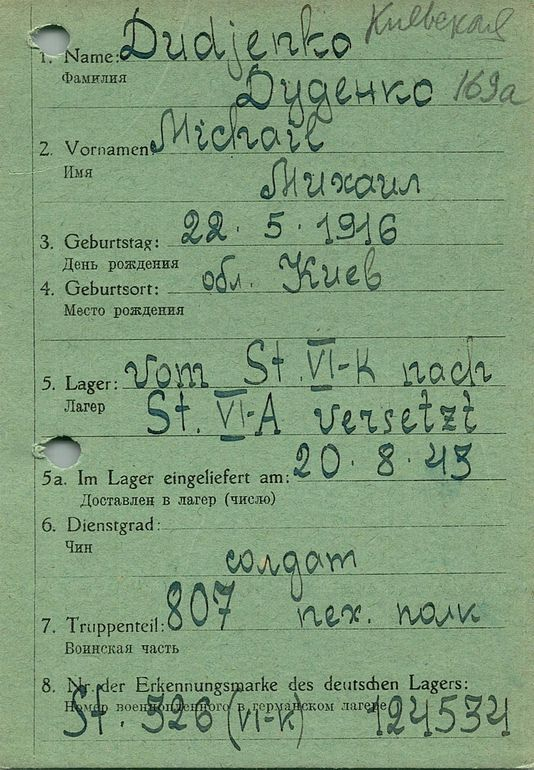 Киевская
1. Name: Dudjenko
Фамилия
Дуденко 169а
2. Vornamen: Michail
Имя
Михаил
3. Geburtstag: 22. 5. 1916
День рождения
4. Geburtsort: обл. Киев
Место рождения
5. Lager: vom St. VI-K nach
Лагерь
St. VI-A versetzt
5a. Im Lager eingeliefert am: 20. 8. 43
Доставлен в лагер (число)
6. Dienstgrad:
Чин
солдат
7. Truppenteil: 807 пех. полк
Воинская часть
8. Nr. der Erkennungsmarke des deutschen Lagers:
Номер военнопленного в германском лагере
St. 326 (VI-K) 124534